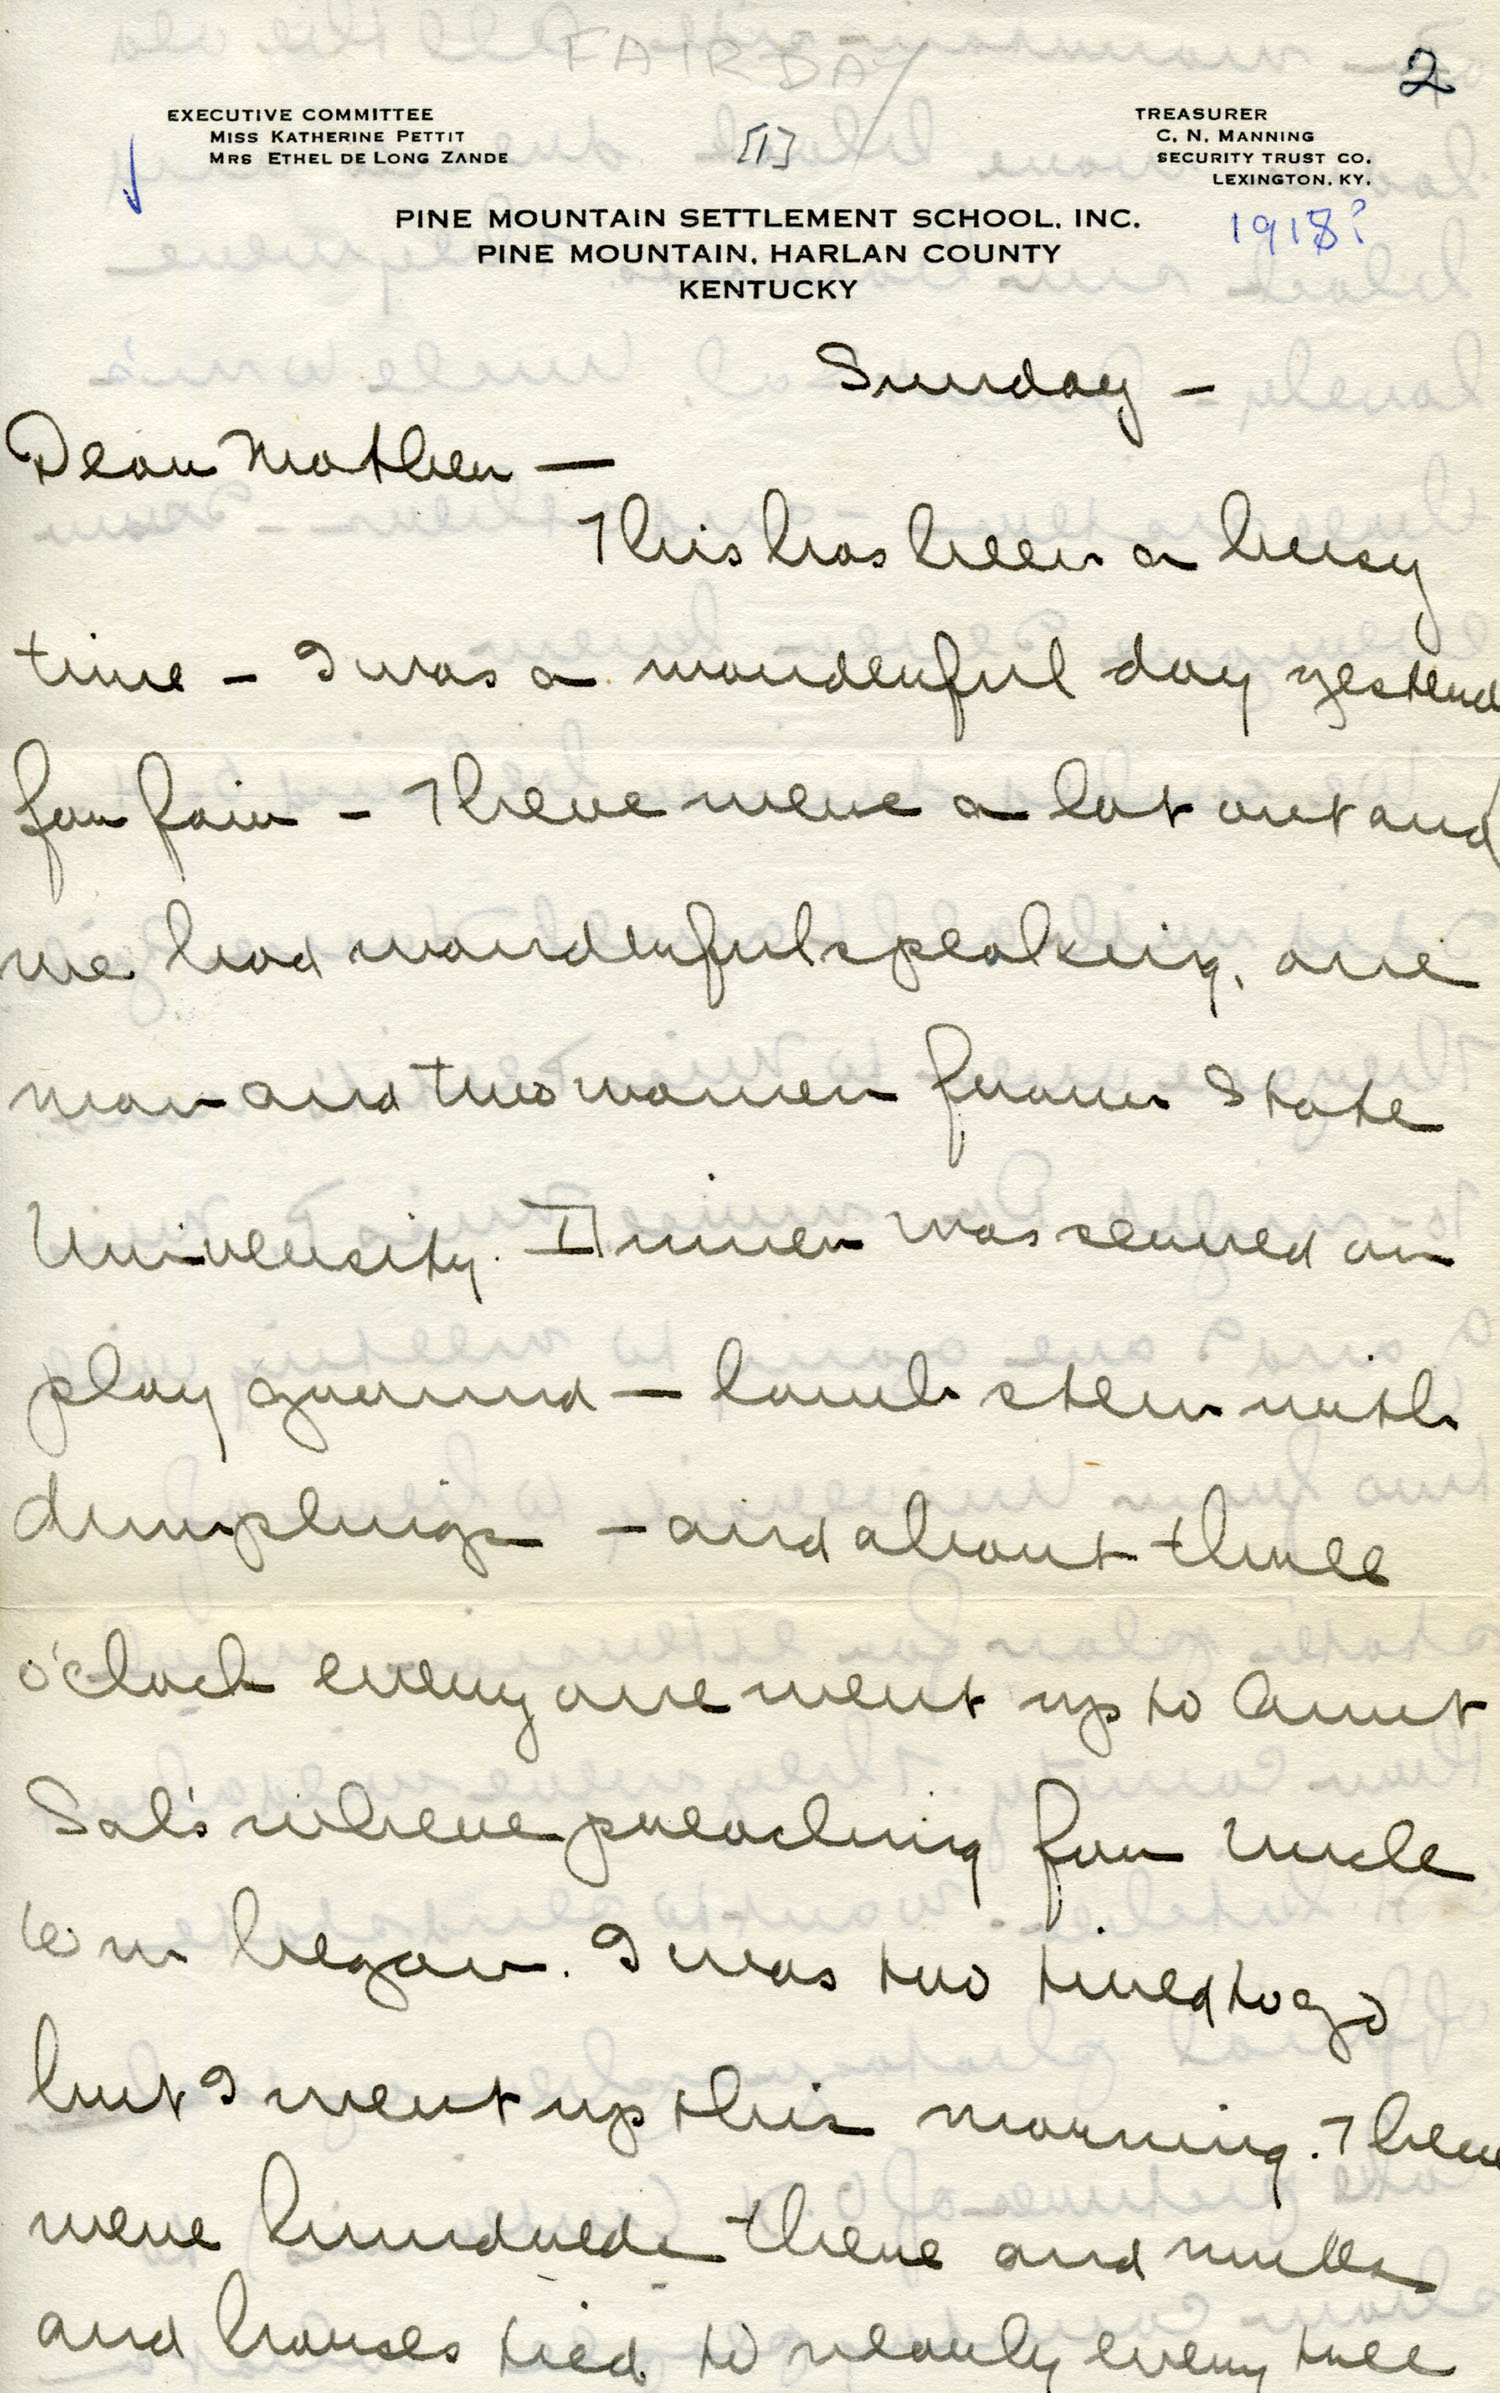 FAIR DAY
2
EXECUTIVE COMMITTEE
MISS KATHERINE PETTIT
MRS ETHEL DE LONG ZANDE
[1]
TREASURER
C. N. MANNING
SECURITY TRUST CO.
LEXINGTON, KY.
PINE MOUNTAIN SETTLEMENT SCHOOL, INC.
PINE MOUNTAIN, HARLAN COUNTY
KENTUCKY
1918?
Sunday —
Dear Mother —
This has been a busy
time — It was a wonderful day yesterd
for fair — There were a lot out and
we had wonderful speaking, one
man and two women from State
University. Dinner was served on
play ground — lamb stew with
dumplings — and about three
o'clock every one went up to Aunt
Sal's where preaching for Uncle
began. I was too tired to go
but I went up this morning. There
were hundreds there and mules
and horses tied to nearly every tree